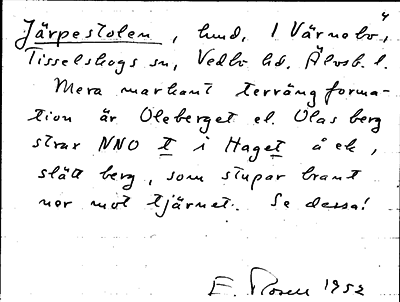 Järpestolen, lund, 1 Värnebo 4,
Tisselskogs sn, Vedbo hd. Älvsb. l.
Mera markant terräng forma-
tion är Oleberget el. Olas berg
strax NNO t i Haget å ek,
slätt berg, som stupar brant
ner mot tjärnet. Se dessa!
E. Rosell 1952